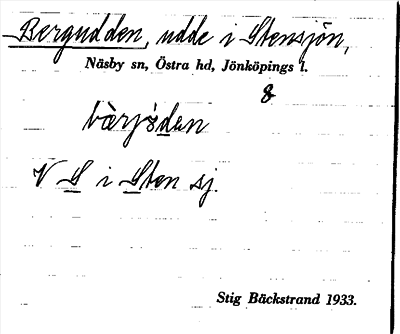 Bergudden, udde i Stensjön,
Näsby sn, Östra hd, Jönköpings l.
8
V S i Sten sj.
Stig Bäckstrand 1933.